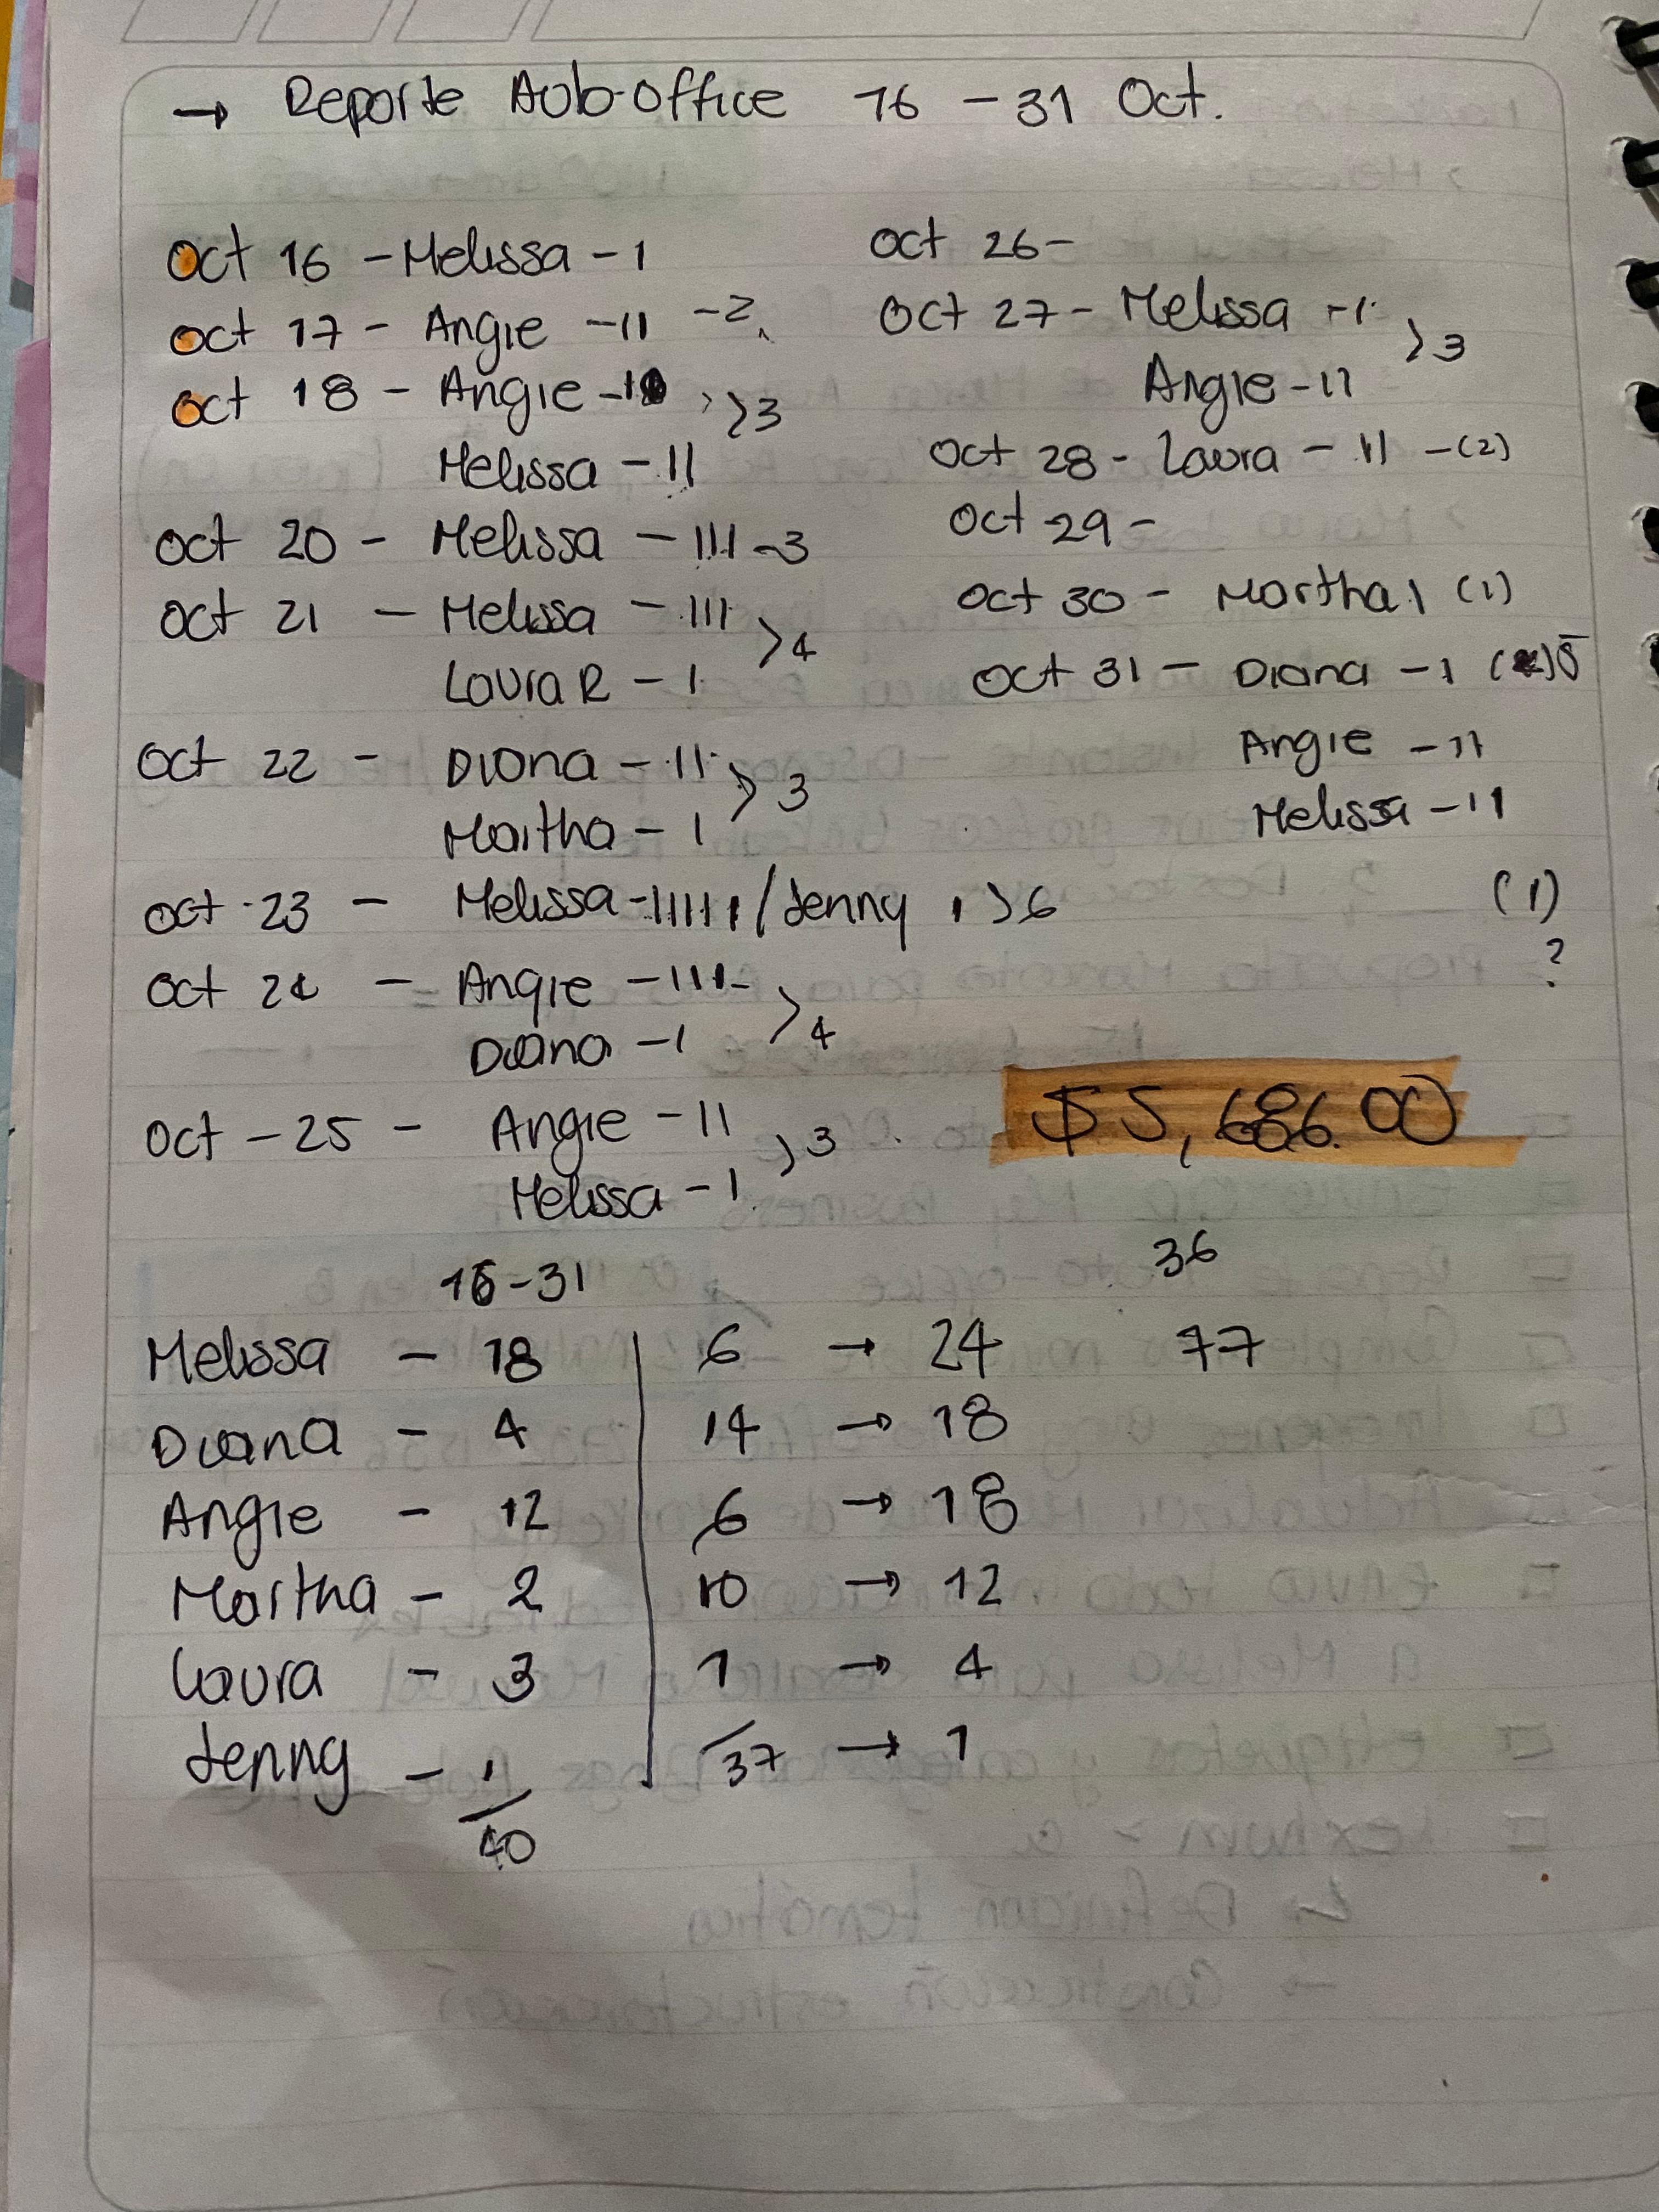 → Reporte Auto-office 16 - 31 Oct.
Oct 16 - Melissa - 1
Oct 17 - Angie - 11 - 2
Oct 18 - Angie - 1 > 3
Melissa - 11
Oct 20 - Melissa - 111 - 3
Oct 21 - Melissa - 111 > 4
Laura R - 1
Oct 22 - Diana - 11 > 3
Martha - 1
Oct 23 - Melissa - 11111 / Jenny 1 > 6
Oct 24 - Angie - 111 > 4
Diana - 1
Oct - 25 - Angie - 11 > 3
Melissa - 1
Oct 26 -
Oct 27 - Melissa - 1 > 3
Angie - 11
Oct 28 - Laura - 11 - (2)
Oct 29 -
Oct 30 - Martha 1 (1)
Oct 31 - Diana - 1 ( ) 5
Angie - 11
Melissa - 11
(1)
?
$5,686.00
16 - 31
36
Melissa - 18 | 6 → 24 77
Diana - 4 | 14 → 18
Angie - 12 | 6 → 18
Martha - 2 | 10 → 12
Laura - 3 | 1 → 4
Jenny - 1 | 37 → 1
40